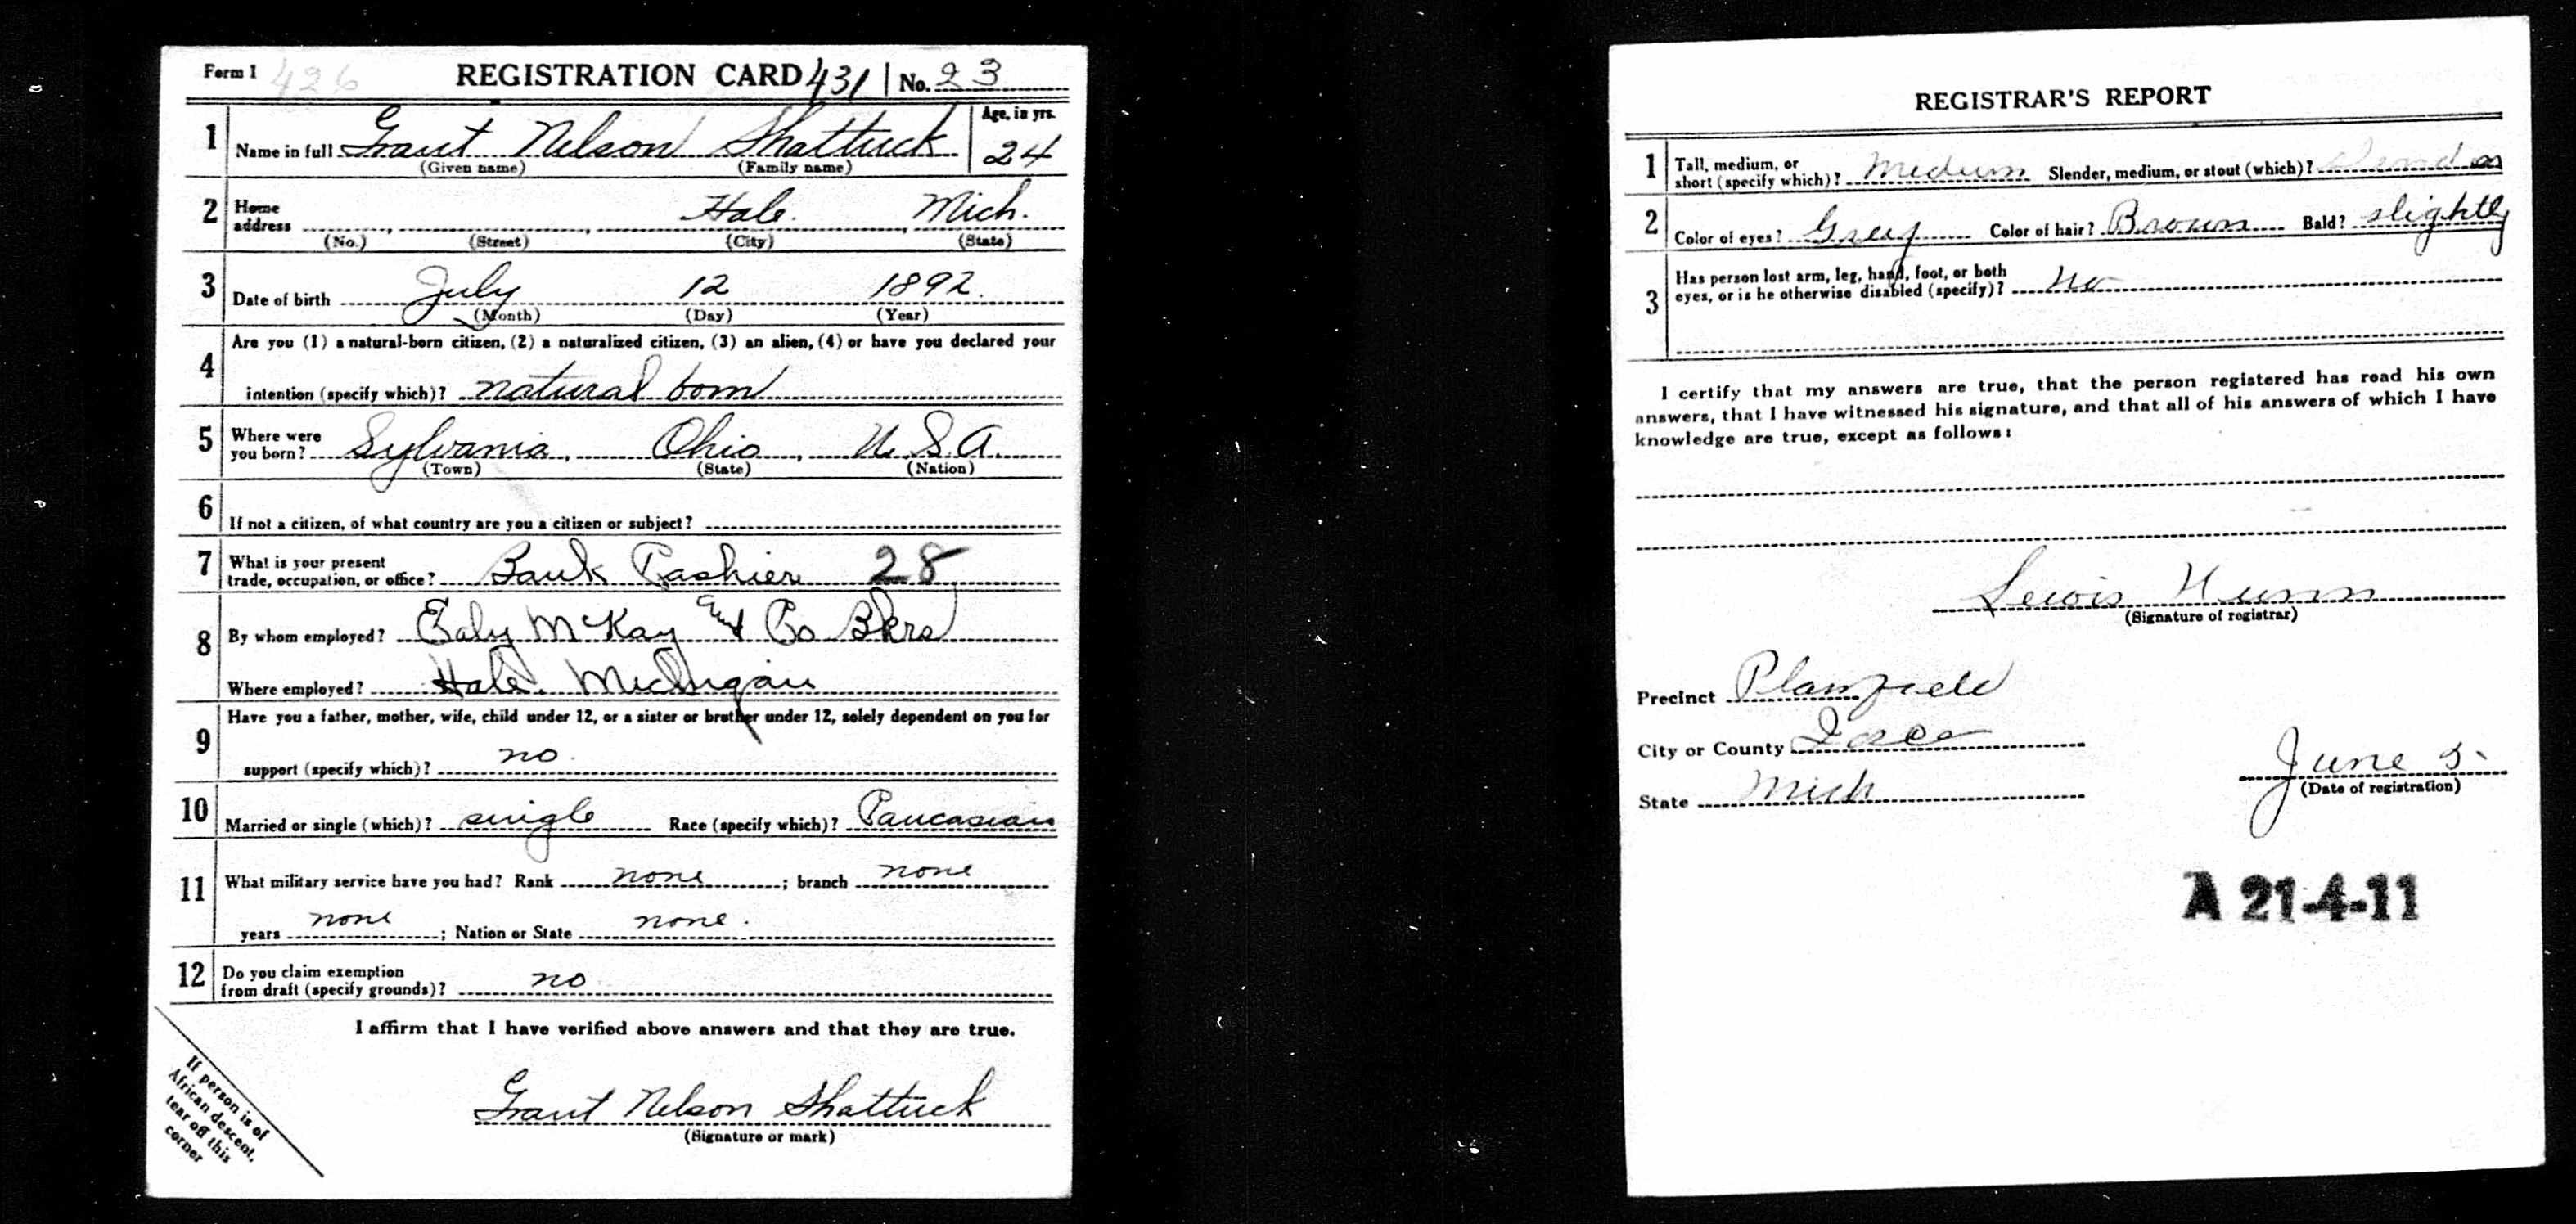 Form 1 426 REGISTRATION CARD 431 No. 23
1 Name in full Grant Nelson Shattuck Age, in yrs. 24
(Given name) (Family name)
2 Home address Hale. Mich.
(No.) (Street) (City) (State)
3 Date of birth July 12 1892.
(Month) (Day) (Year)
4 Are you (1) a natural-born citizen, (2) a naturalized citizen, (3) an alien, (4) or have you declared your
intention (specify which)? natural born
5 Where were you born? Sylvania, Ohio, U.S.A.
(Town) (State) (Nation)
6 If not a citizen, of what country are you a citizen or subject?
7 What is your present
trade, occupation, or office? Bank Cashier 28
8 By whom employed? Ealy McKay and Co Bkrs
Where employed? Hale. Michigan
9 Have you a father, mother, wife, child under 12, or a sister or brother under 12, solely dependent on you for
support (specify which)? no.
10 Married or single (which)? single Race (specify which)? Caucasian
11 What military service have you had? Rank none ; branch none
years none ; Nation or State none.
12 Do you claim exemption
from draft (specify grounds)? no
I affirm that I have verified above answers and that they are true.
Grant Nelson Shattuck
(Signature or mark)
If person is of
African descent,
tear off this
corner
REGISTRAR'S REPORT
1 Tall, medium, or
short (specify which)? Medium Slender, medium, or stout (which)?
2 Color of eyes? Grey Color of hair? Brown Bald? slightly
3 Has person lost arm, leg, hand, foot, or both
eyes, or is he otherwise disabled (specify)? No
I certify that my answers are true, that the person registered has read his own
answers, that I have witnessed his signature, and that all of his answers of which I have
knowledge are true, except as follows:
Lewis Nunn
(Signature of registrar)
Precinct Plainfield
City or County Iosco
State Mich
June 5.
(Date of registration)
A 21-4-11